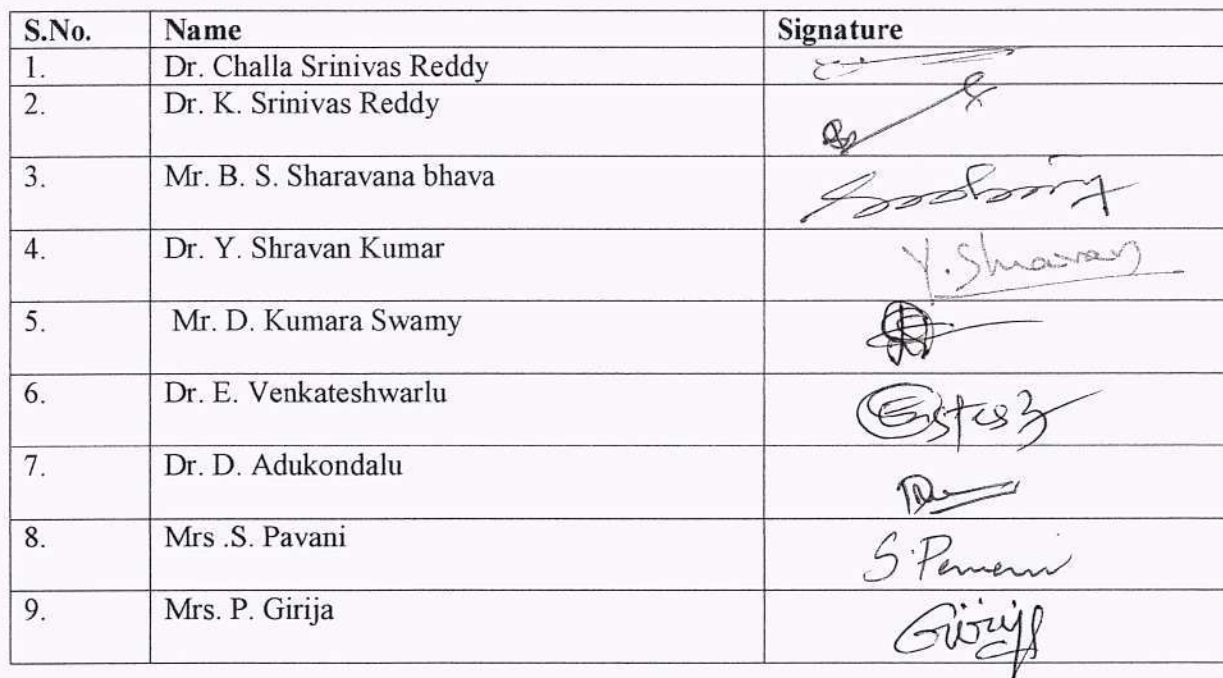 S.No. Name Signature
1. Dr. Challa Srinivas Reddy
2. Dr. K. Srinivas Reddy
3. Mr. B. S. Sharavana bhava
4. Dr. Y. Shravan Kumar Y. Shravan
5. Mr. D. Kumara Swamy
6. Dr. E. Venkateshwarlu
7. Dr. D. Adukondalu
8. Mrs .S. Pavani
9. Mrs. P. Girija